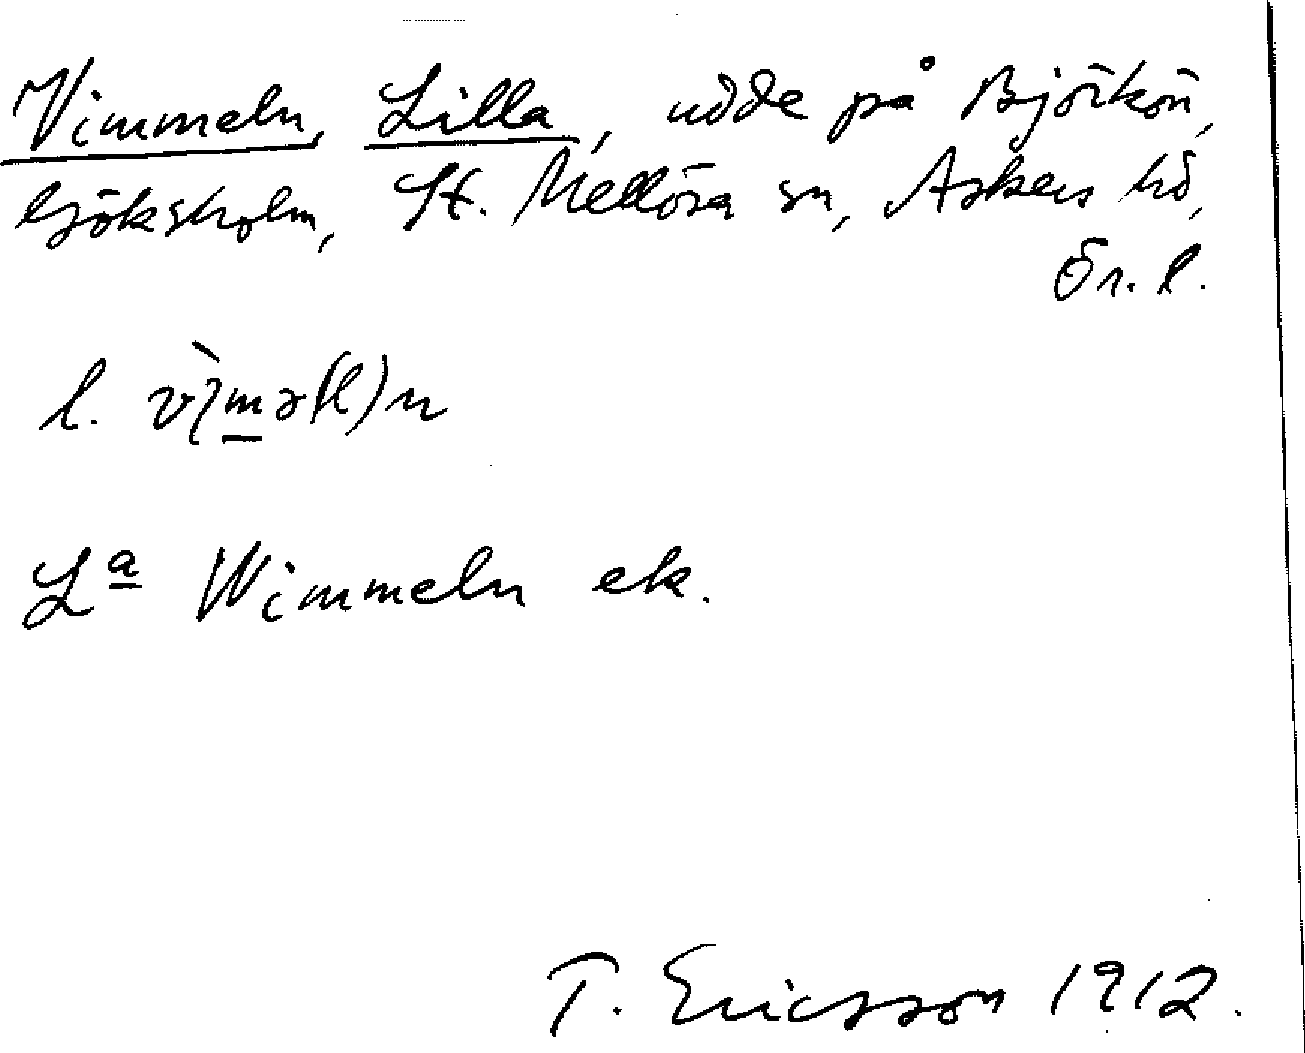 Vimmeln, Lilla, udde på Björkön,
Göksholm, St. Mellösa sn, Askers hd,
Ör. l.
l. vìmə(l)n
Lª Wimmeln ek.
T. Ericsson 1912.